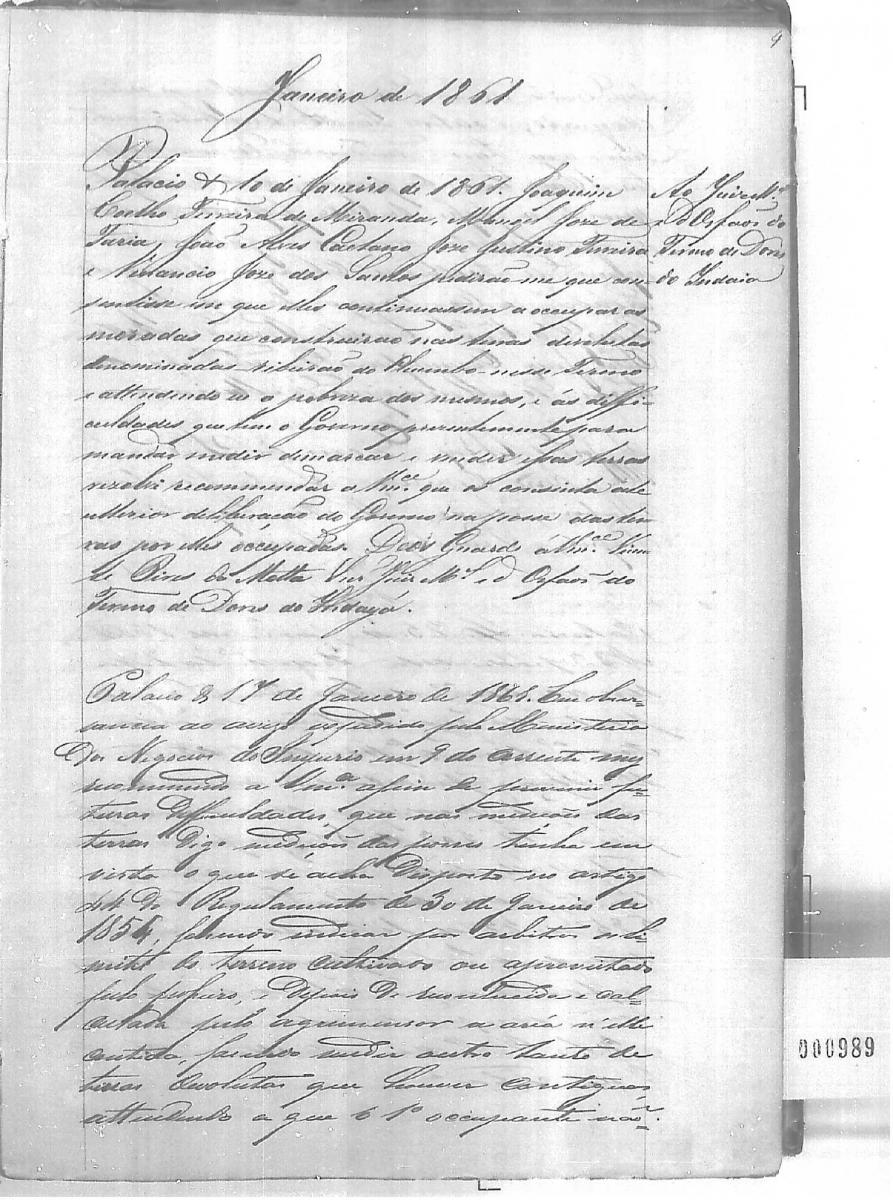 4
Janeiro de 1861
Palacio & 10 de Janeiro de 1861. Joaquim
Coelho Teixeira de Miranda, Manoel Joze de
Faria, João Alves Caetano Joze Justino Teixeira
e Venancio Joze dos Santos pedirão me que con
sentisse em que elles continuassem a occupar as
moradas que construirão nas terras devolutas
denominadas ribeirão do Chumbo nesse Termo
e attendendo a pobreza dos mesmos, e ás diffi-
culdades que tem o Governo presentemente para
mandar medir demarcar e vender essas terras
rezolvi recommendar a Vmce. que os consinta até
ulterior deliberação do Governo na posse das ter
ras por elles occupadas. Deos Guarde á Vmce. Vicen
te Pires da Motta Snr. Juiz Ml. e d Orfãos do
Termo de Dores do Indayá.
Ao Juiz Ml.
e d Orfãos do
Termo de Dores
do Indaia
Palacio & 17 de Janeiro de 1861. Em obser-
vancia ao avizo expedido pelo Ministerio
dos Negocios do Imperio em 9 do corrente mez
recommendo a Vmce. afim de prevenir fu-
turas difficuldades, que nas medicões das
terras digo medicões das posses tenha em
vista o que se acha disposto no artigo
44 do Regulamento de 30 de Janeiro de
1854, fazendo indicar por arbitros o li-
mite do terreno cultivado ou aproveitado
pelo posseiro, e depois de reconhecida e cal-
culada pelo agrimensor a aria n'elle
contida, fazendo medir outro tanto de
terras devolutas que houver contiguas
attendendo a que o 1º occupante não
000989